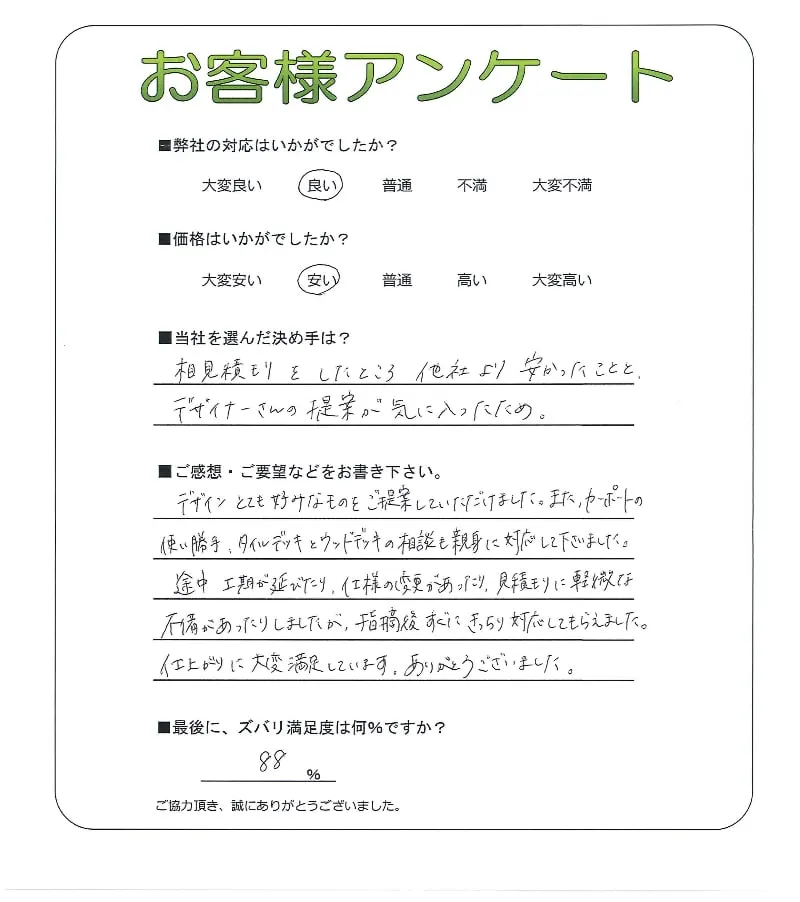 お客様アンケート
■弊社の対応はいかがでしたか？
大変良い 良い 普通 不満 大変不満
■価格はいかがでしたか？
大変安い 安い 普通 高い 大変高い
■当社を選んだ決め手は？
相見積もりをしたところ 他社より 安かったことと、
デザイナーさんの提案が気に入ったため。
■ご感想・ご要望などをお書き下さい。
デザインとても好みなものをご提案していただけました。また、カーポートの
使い勝手、タイルデッキとウッドデッキの相談も親身に対応して下さいました。
途中 工期が延びたり、仕様の変更があったり、見積もりに軽微な
不備があったりしましたが、指摘後すぐにきっちり対応してもらえました。
仕上がりに大変満足しています。ありがとうございました。
■最後に、ズバリ満足度は何%ですか？
88 %
ご協力頂き、誠にありがとうございました。